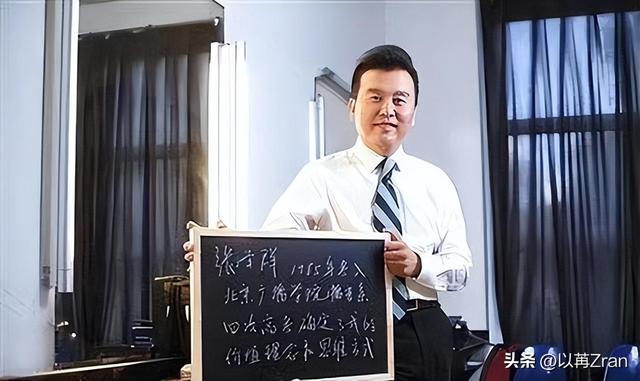 张宇群 1985年考入
北京广播学院播音系
四次高考确定了我的
价值理念和思维方式
头条 @以苒Zran